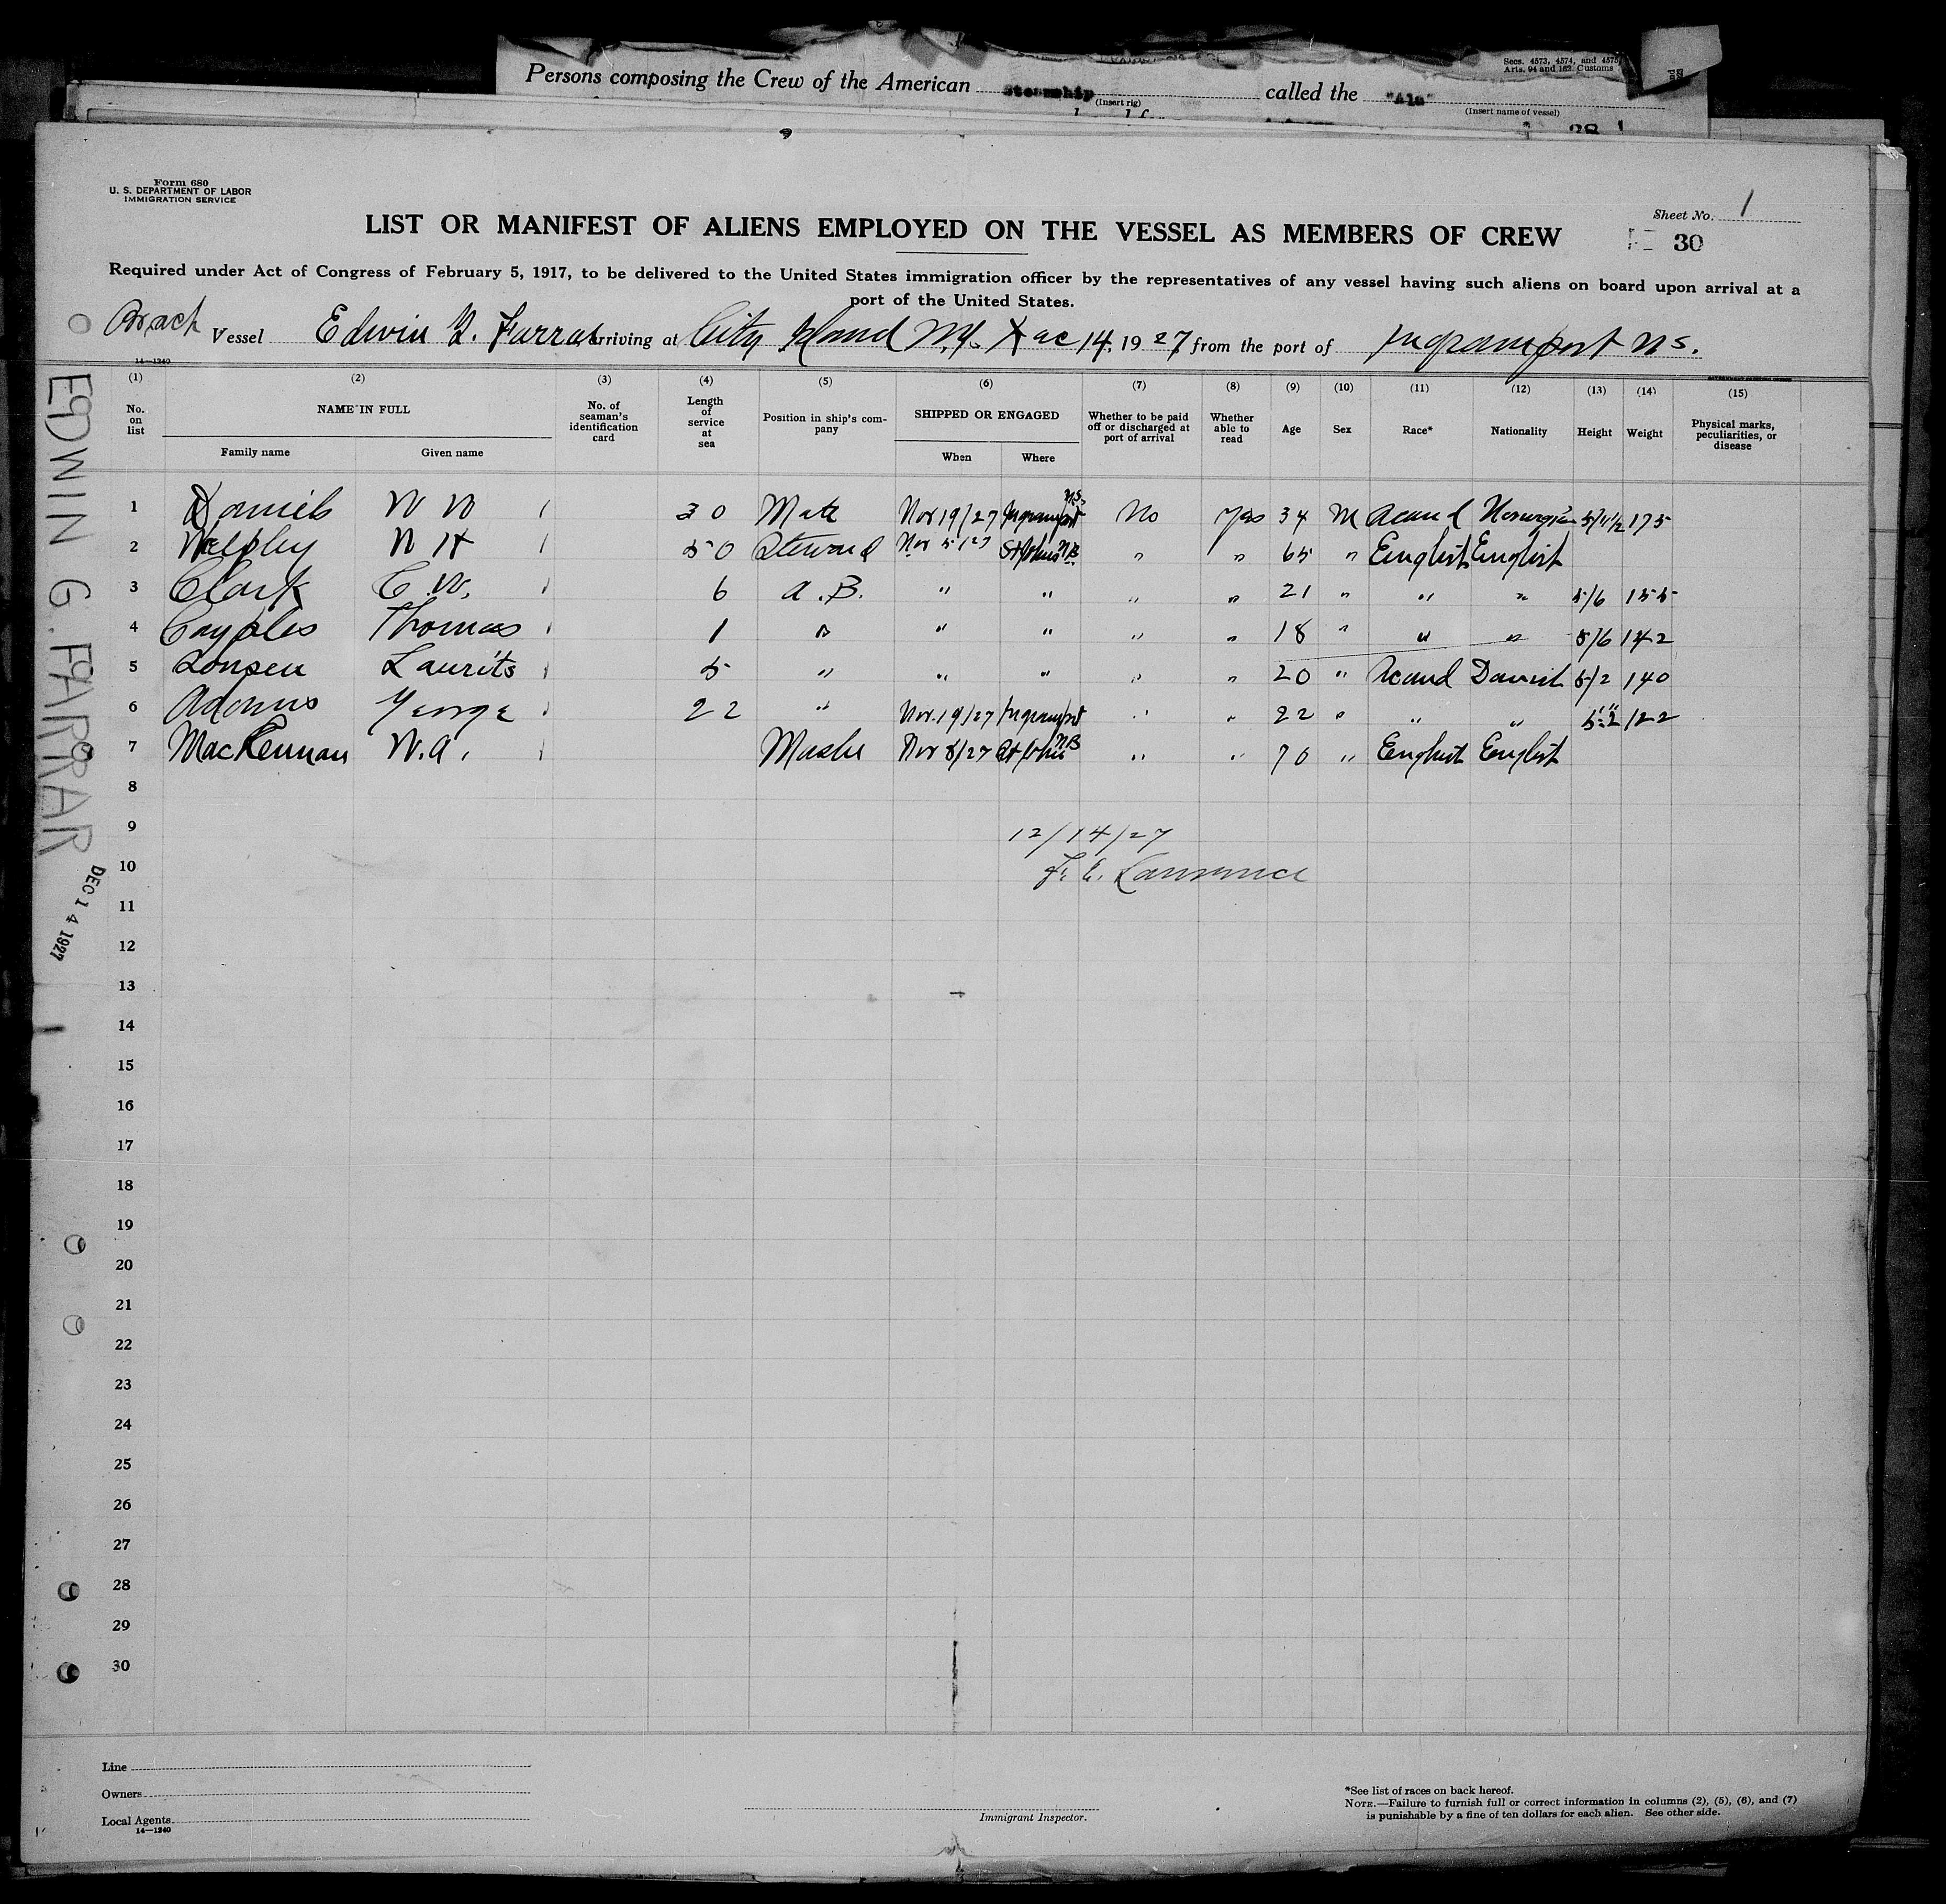 Persons composing the Crew of the American Steamship called the "Ala"
(Insert rig) (Insert name of vessel)
Secs. 4573, 4574, and 4575
Arts. 94 and 162. Customs
Form 680
U. S. DEPARTMENT OF LABOR
IMMIGRATION SERVICE
Sheet No. 1
LIST OR MANIFEST OF ALIENS EMPLOYED ON THE VESSEL AS MEMBERS OF CREW
30
Required under Act of Congress of February 5, 1917, to be delivered to the United States immigration officer by the representatives of any vessel having such aliens on board upon arrival at a
port of the United States.
Vessel Edwin G. Farrar arriving at City Island N.Y. Dec 14, 1927 from the port of Ingramport N.S.
14—1240
(1) (2) (3) (4) (5) (6) (7) (8) (9) (10) (11) (12) (13) (14) (15)
No. on list NAME IN FULL No. of seaman's identification card Length of service at sea Position in ship's company SHIPPED OR ENGAGED Whether to be paid off or discharged at port of arrival Whether able to read Age Sex Race* Nationality Height Weight Physical marks, peculiarities, or disease
Family name Given name When Where
1 Daniels W W 30 Mate Nov 19/27 Ingramport N.S. No Yes 34 M Scand Norwegian 5/11½ 175
2 Welpley N H 50 Steward Nov 5/27 St Johns N.B. " " 65 " English English
3 Clark C. W. 6 A.B. " " " " 21 " " " 5/6 155
4 Cayples Thomas 1 " " " " " 18 " " " 5/6 142
5 Lonsen Laurits 5 " " " " " 20 " Scand Danish 5/2 140
6 Adams George 22 " Nov. 19/27 Ingramport " " 22 " " " 5'2" 122
7 MacKennan N.A. Master Nov 8/27 St Johns N.B " " 70 " English English
8
9 12/14/27
10 F. E. Lawrence
11
12
13
14
15
16
17
18
19
20
21
22
23
24
25
26
27
28
29
30
EDWIN G. FARRAR
DEC 14 1927
Line
Owners
Local Agents
14—1240
Immigrant Inspector.
*See list of races on back hereof.
NOTE.—Failure to furnish full or correct information in columns (2), (5), (6), and (7)
is punishable by a fine of ten dollars for each alien. See other side.